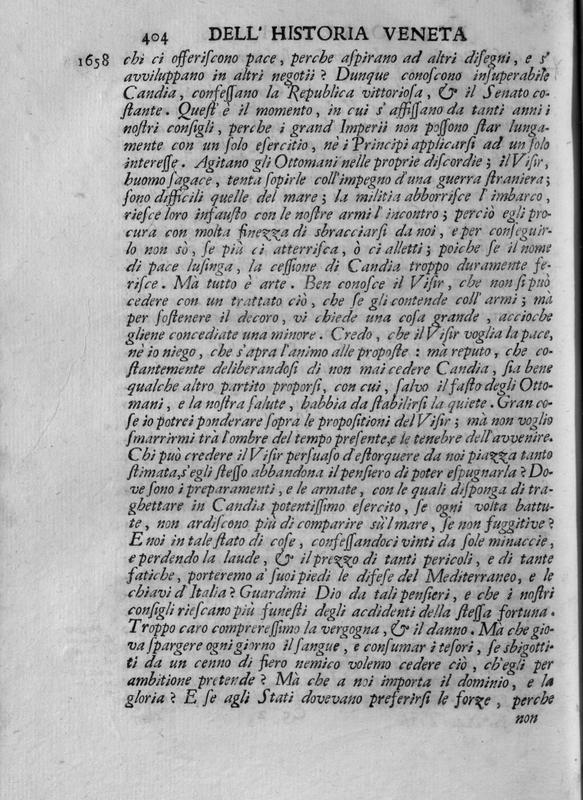 404 DELL' HISTORIA VENETA
1658 chi ci offeriſcono pace, perche aſpirano ad altri diſegni, e s'
avviluppano in altri negotii? Dunque conoſcono inſuperabile
Candia, confeſſano la Republica vittorioſa, & il Senato co-
ſtante. Queſt' è il momento, in cui s' affiſſano da tanti anni i
noſtri conſigli, perche i grand' Imperii non poſſono ſtar lunga-
mente con un ſolo eſercitio, nè i Principi applicarſi ad un ſolo
intereſſe. Agitano gli Ottomani nelle proprie diſcordie; il Viſir,
huomo ſagace, tenta ſopirle coll' impegno d' una guerra ſtraniera;
ſono difficili quelle del mare; la militia abborriſce l' imbarco,
rieſce loro infauſto con le noſtre armi l' incontro; perciò egli pro-
cura con molta finezza di sbracciarſi da noi, e per conſeguir-
lo non sò, ſe più ci atterriſca, ò ci alletti; poiche ſe il nome
di pace luſinga, la ceſſione di Candia troppo duramente fe-
riſce. Mà tutto è arte. Ben conoſce il Viſir, che non ſi può
cedere con un trattato ciò, che ſe gli contende coll' armi; mà
per ſoſtenere il decoro, vi chiede una coſa grande, accioche
gliene concediate una minore. Credo, che il Viſir voglia la pace,
nè io niego, che s' apra l' animo alle propoſte: mà reputo, che co-
ſtantemente deliberandoſi di non mai cedere Candia, ſia bene
qualche altro partito proporſi, con cui, ſalvo il faſto degli Otto-
mani, e la noſtra ſalute, habbia da ſtabilirſi la quiete. Gran co-
ſe io potrei ponderare ſopra le propoſitioni del Viſir; mà non voglio
ſmarrirmi trà l' ombre del tempo preſente, e le tenebre dell' avvenire.
Chi può credere il Viſir perſuaſo d' eſtorquere da noi piazza tanto
ſtimata, s' egli ſteſſo abbandona il penſiero di poter eſpugnarla? Do-
ve ſono i preparamenti, e le armate, con le quali diſponga di tra-
ghettare in Candia potentiſſimo eſercito, ſe ogni volta battu-
te, non ardiſcono più di comparire sù'l mare, ſe non fuggitive?
E noi in tale ſtato di coſe, confeſſandoci vinti da ſole minaccie,
e perdendo la laude, & il prezzo di tanti pericoli, e di tante
fatiche, porteremo a' ſuoi piedi le difeſe del Mediterraneo, e le
chiavi d' Italia? Guardimi Dio da tali penſieri, e che i noſtri
conſigli rieſcano più funeſti degli accidenti della ſteſſa fortuna.
Troppo caro comprereſſimo la vergogna, & il danno. Mà che gio-
va ſpargere ogni giorno il ſangue, e conſumar i teſori, ſe sbigotti-
ti da un cenno di fiero nemico volemo cedere ciò, ch' egli per
ambitione pretende? Mà che a noi importa il dominio, e la
gloria? E ſe agli Stati dovevano preferirſi le forze, perche
non